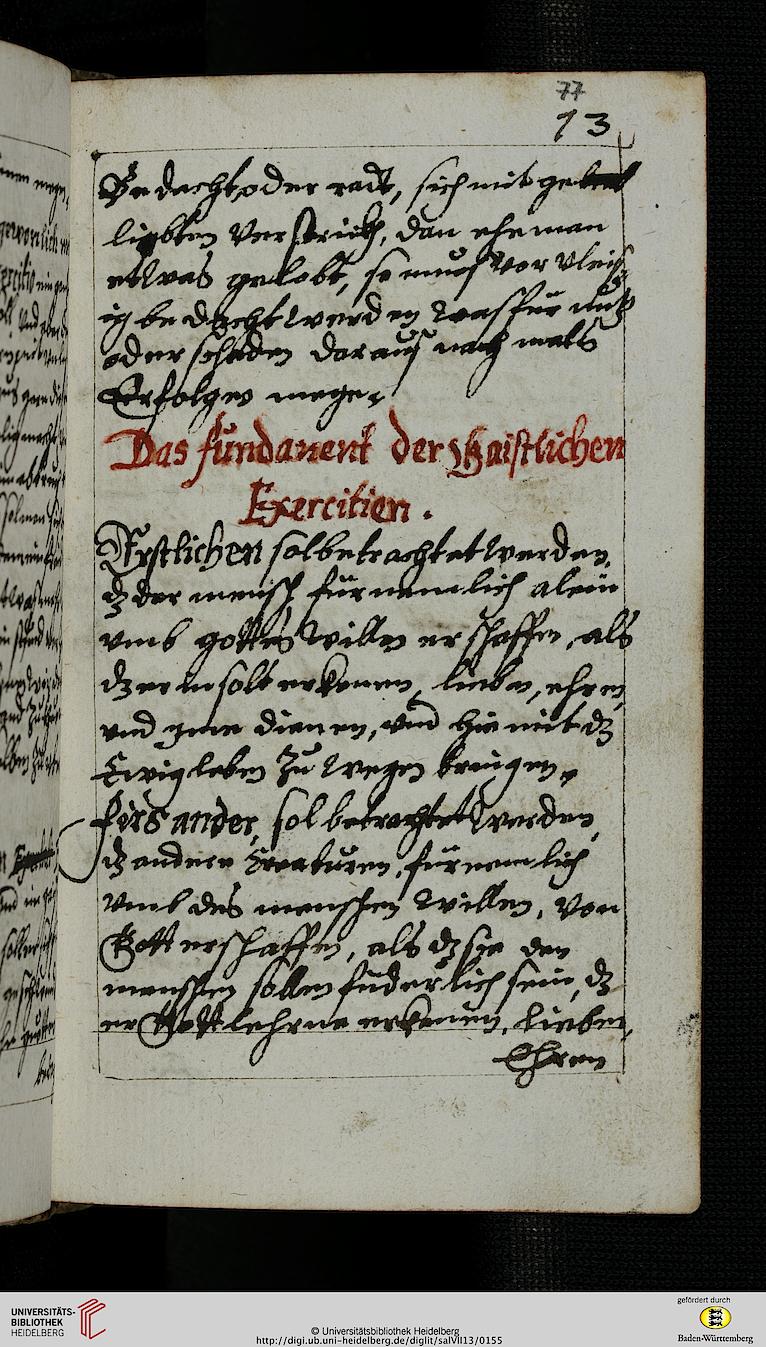 77
13
Bedacht, oder radt, sich mit gelub
ligkten Verstrickh, dan ehe man
etwas gelobt, so muos vor vleis
ig bedacht werden was für nutz
oder schaden daraus nach mals
Erfolgen mege.
Das fundament der Gaistlichen
Exercitien.
Erstlichen sol betrachtet werden,
dz der mensch fürnemlich alein
vmb gottes willen erschaffen, als
dz er in solt erkenen, lieben, ehren,
vnd ime dienen, vnd hiemit dz
Ewig leben zu wegen bringen.
fürs ander, sol betrachtet werden,
dz andere Creaturen, fürnemlich
vmb des menschen willen, von
Gott erschaffen, als dz sie den
menschen sollen füderlich sein, dz
er Gott lehrne erkenen, lieben,
Ehren
UNIVERSITÄTS-
BIBLIOTHEK
HEIDELBERG
© Universitätsbibliothek Heidelberg
http://digi.ub.uni-heidelberg.de/diglit/salVII13/0155
gefördert durch
Baden-Württemberg